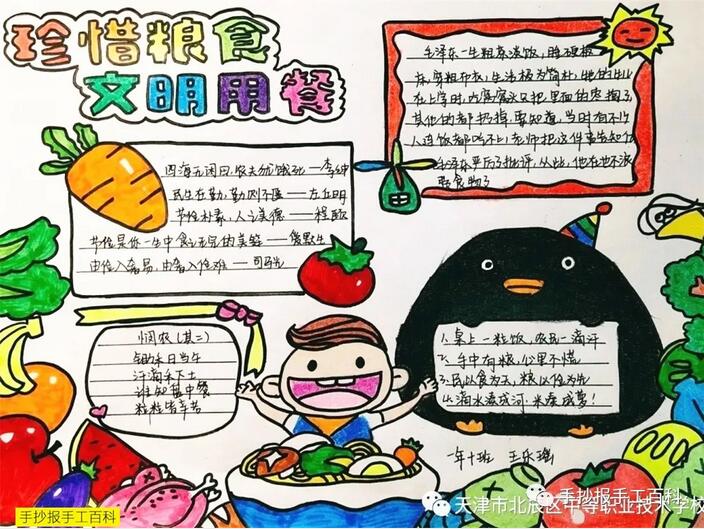 珍惜粮食
文明用餐
毛泽东一生粗茶淡饭,睡硬板
床,穿粗布衣,生活极为简朴,他的儿
在上学时,
其他的都扔掉,要知道,当时有不少
人连饭都吃不上,老师把这件事告知
毛泽东严厉了批评,从此,他在也不浪
费食物了
四海无闲田,农夫犹饿死——李绅
民生在勤,勤则不匮——左丘明
节俭朴素,人之美德——程
节俭是你一生中食之无完的美筵——爱默生
由俭入奢易,由奢入俭难——司马光
悯农(其二)
锄禾日当午
汗滴禾下土
谁知盘中餐
粒粒皆辛苦
1.桌上一粒饭,农民一滴汗
2.手中有粮,心里不慌
3.民以食为天,粮以俭为先
4.滴水凑成河,米凑成萝!
一年十班 王乐瑶
手抄报手工百科
手抄报手工百科
天津市北辰区中等职业技术学校